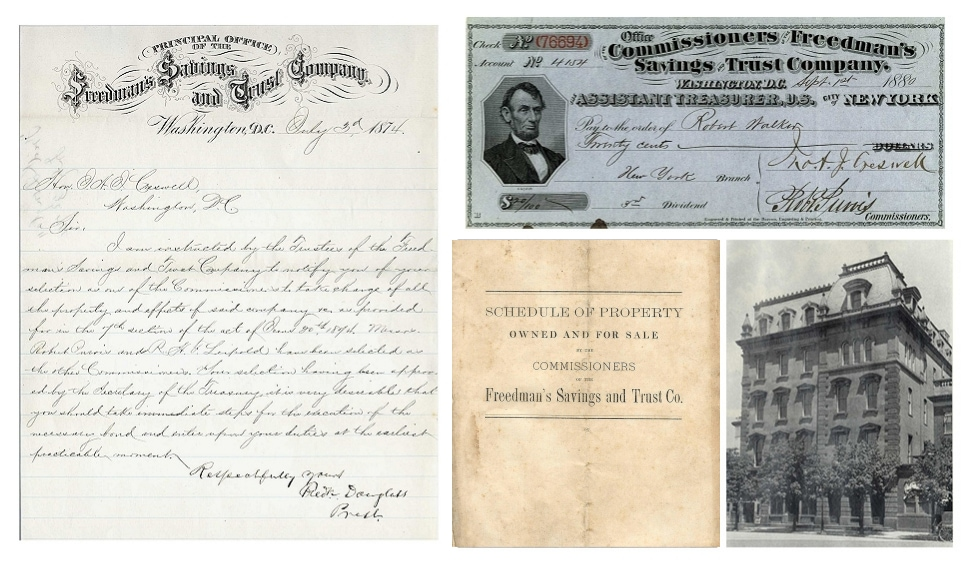 PRINCIPAL OFFICE
OF THE
Freedman's Savings
and Trust Company.
Washington, D.C. July 3d 1874.
Hon. J. A. J. Creswell,
Washington, D.C
Sir:
I am instructed by the Trustees of the Freed
man's Savings and Trust Company to notify you of your
selection as one of the Commissioners to take charge of all
the property and effects of said company as is provided
for in the 7th section of the act of June 20th 1874. Messrs.
Robert Purvis and R. H. T. Leipold have been selected as
the other Commissioners. Your selection having been approv
ed by the Secretary of the Treasury, it is very desirable that
you should take immediate steps for the execution of the
necessary bond and enter upon your duties at the earliest
practicable moment.
Respectfully yours
Fredk. Douglass
Prest.
Check No (76694)
Account No 4154
Office
Commissioners of the Freedman's
Savings and Trust Company.
WASHINGTON, D.C. Sept. 1st 1880
THE ASSISTANT TREASURER, U.S. CITY OF NEW YORK
Pay to the order of Robert Walker
Twenty cents DOLLARS
New York Branch
Jno. A. J. Creswell
$ 20/100 3d Dividend
Robt Purvis
Commissioners.
SCHEDULE OF PROPERTY
OWNED AND FOR SALE
BY THE
COMMISSIONERS
OF THE
Freedman's Savings and Trust Co.